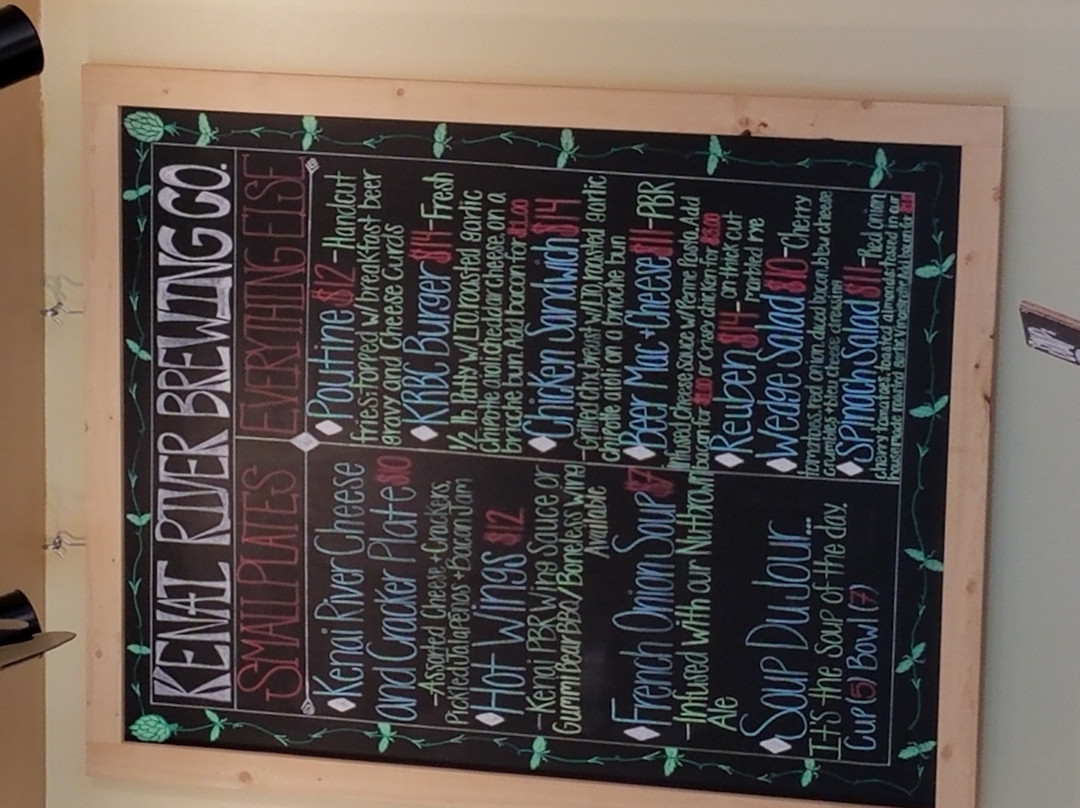 KENAI RIVER BREWING CO.
SMALL PLATES
Kenai River Cheese
and Cracker Plate $10
-Assorted Cheese + Crackers,
Pickled Jalapenos + Bacon Jam
Hot Wings $12
-Kenai PBR Wing Sauce or
Gummi Bear BBQ/Boneless Wing
Available
French Onion Soup $7
-Infused with our Nut Brown
Ale
Soup Du Jour...
It's the Soup of the day.
Cup (5) Bowl (7)
EVERYTHING ELSE
Poutine $12 - Handcut
fries topped w/ breakfast beer
gravy and Cheese Curds
KRBC Burger $14 - Fresh
1/2 lb Patty w/ LTO, roasted garlic
Chipotle aioli, cheddar cheese on a
brioche bun Add bacon for
Chicken Sandwich $14
-Grilled Chx breast w/LTO, roasted garlic
chipotle aioli on a brioche bun
Beer Mac + Cheese $11 - PBR
infused Cheese Sauce w/ Penne Pasta. Add
bacon for or Crispy chicken for $3.00
Reuben $14 -
on thick cut
marbled rye
Wedge Salad $10 - Cherry
tomatoes, red onion, diced bacon, bleu cheese
crumbles + bleu cheese dressing
Spinach Salad $11 - Red onion,
cherry tomatoes, toasted almonds tossed in our
house